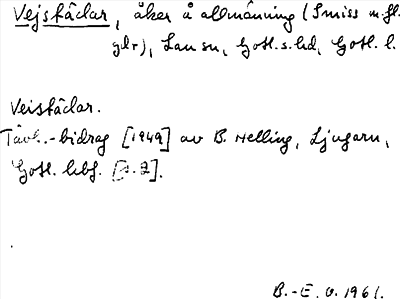 Vejstäclar, åker å allmänning (Smiss m.fl.
glr), Lau sn, Gotl. s. hd, Gotl. l.
Veistäclar.
Tävl.-bidrag [1949] av B. Helling, Ljugarn,
Gotl. hbf.
B.-E. O. 1961.